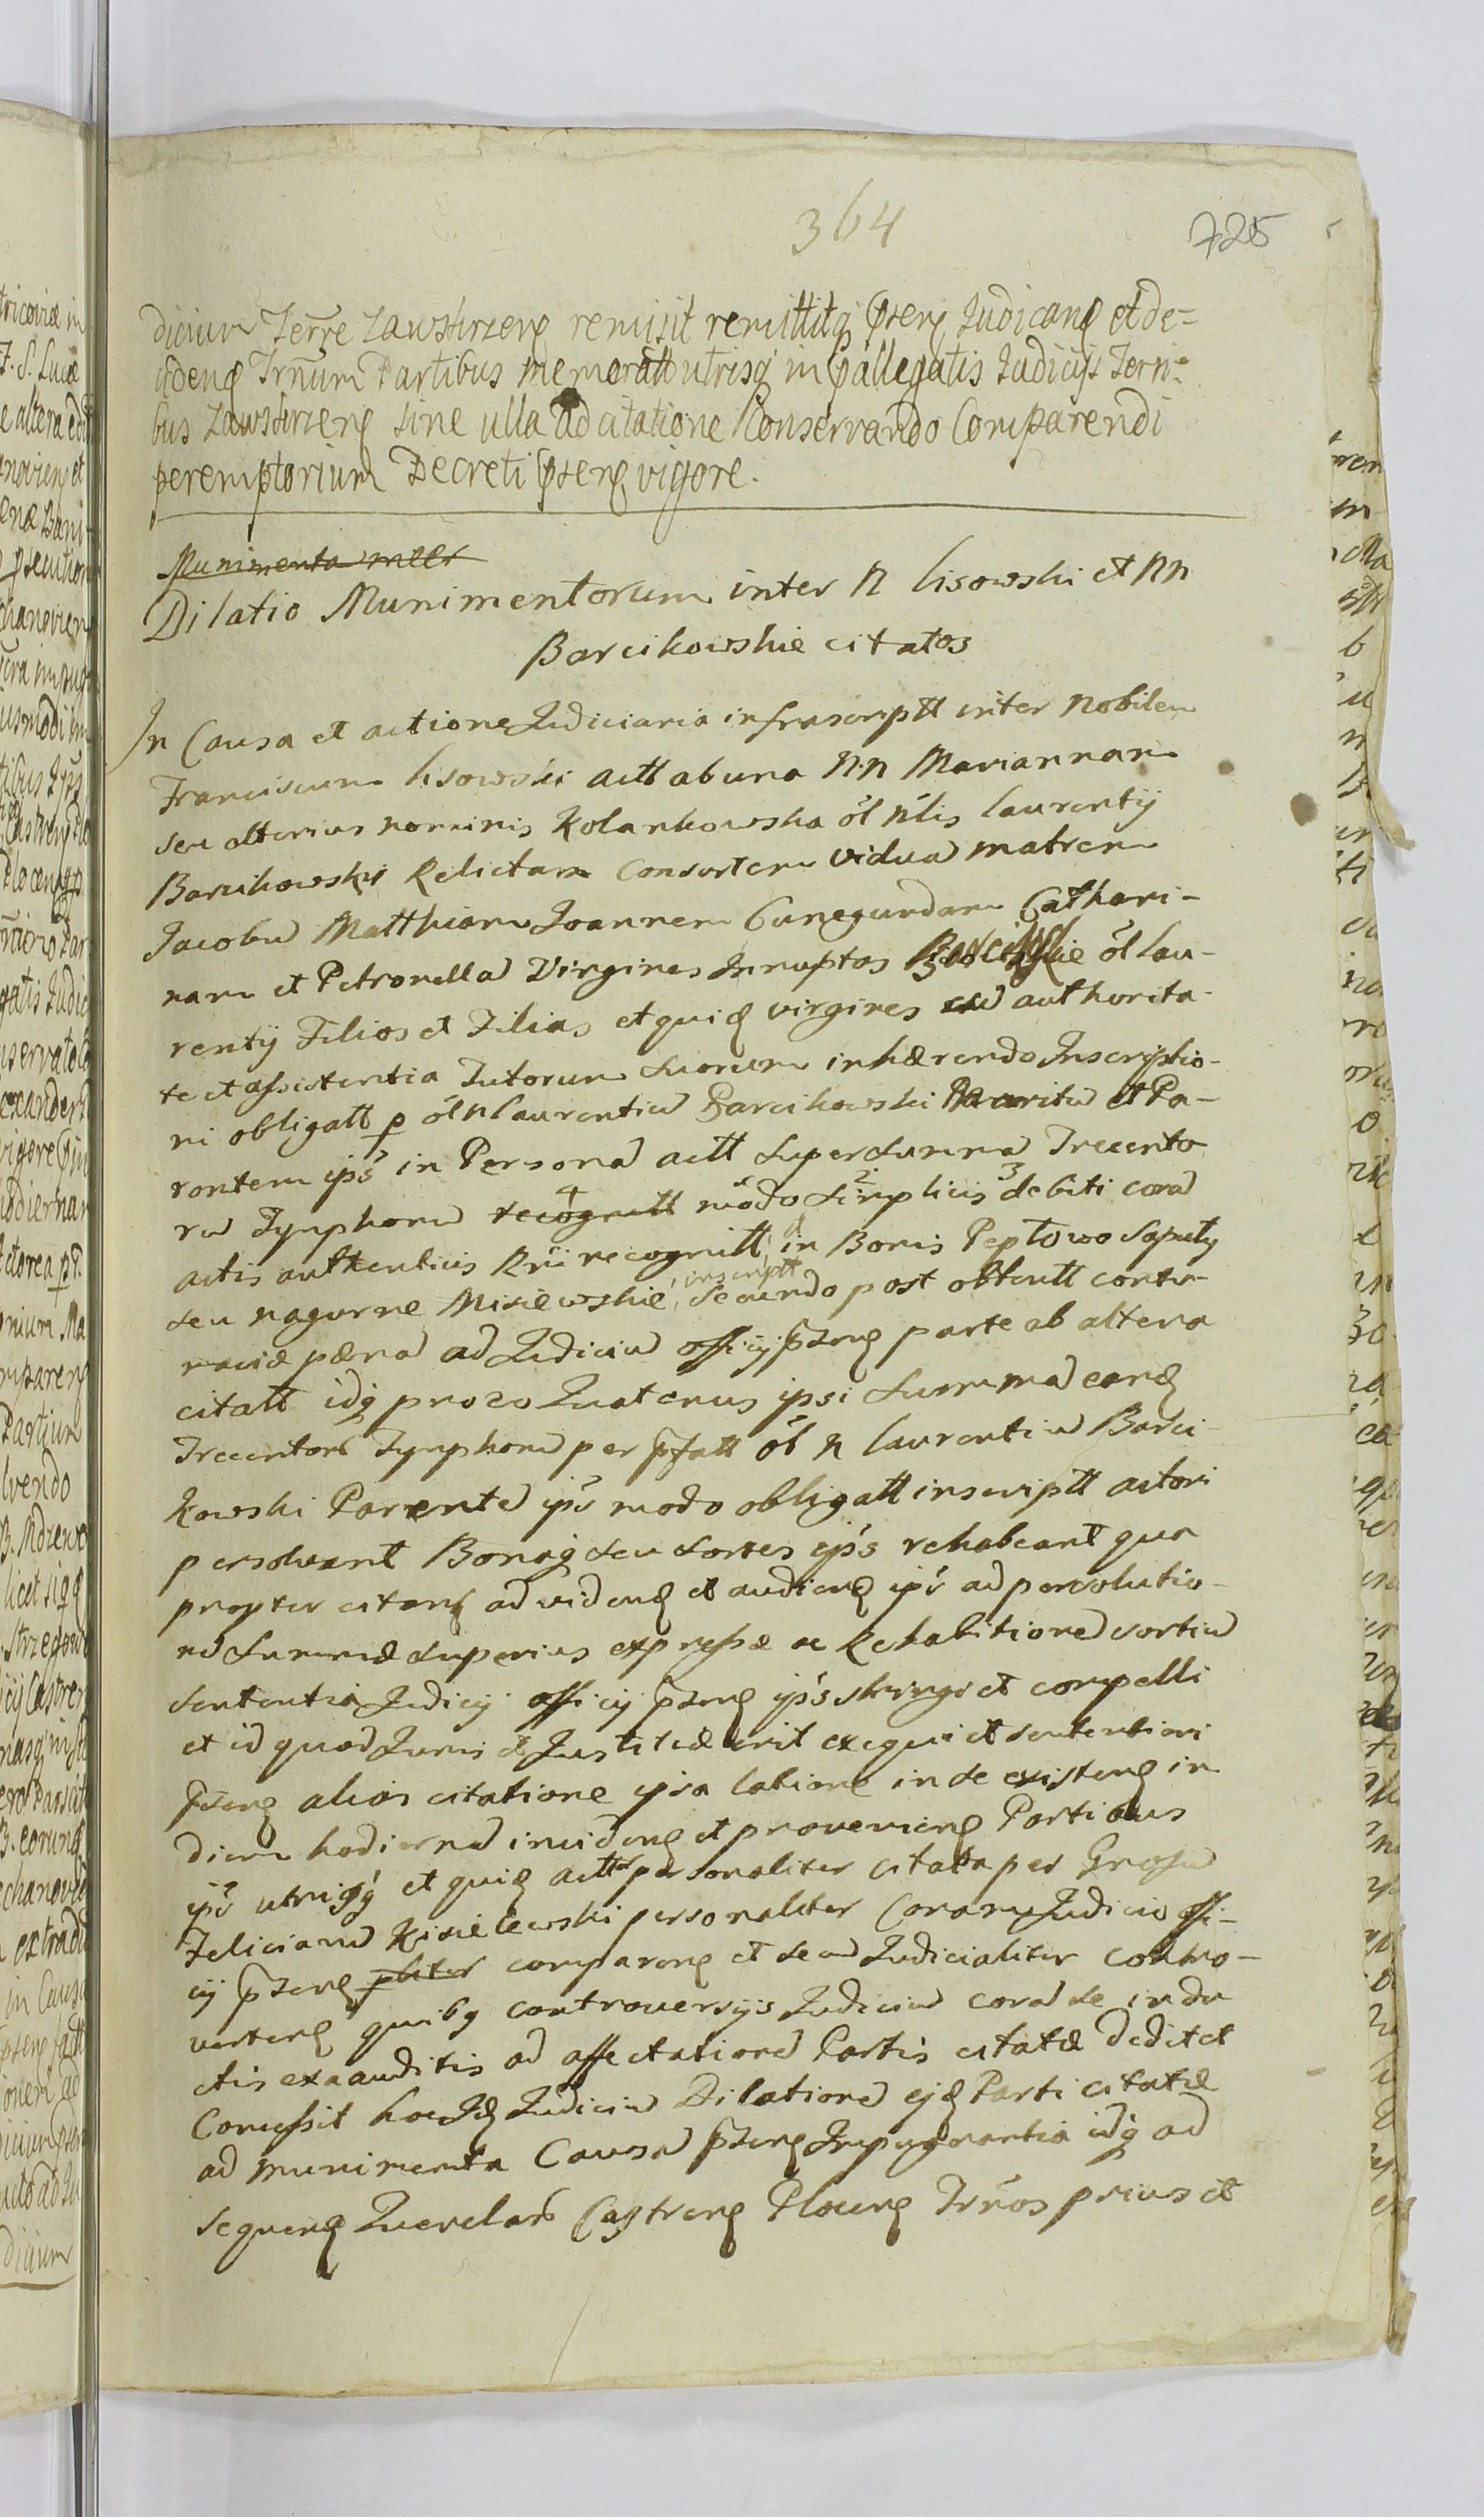 364
725
dicium Terre Zawskrzen remisit remittitq pñen Judican et de-
ciden Trnum Partibus memoratt utrisq in pallegatis Judicijs Terri-
bus Zawskrzen sine ulla adcitatione Conservando Comparendi
peremptorium Decreti pñen vigore.
Munimenta
Dilatio Munimentorum inter N lisowski et NN
Barcikowskie citatos
In Causa et actione Judiciaria infrascriptt inter Nobilem
Franciscum lisowski actt ab una N.N Mariannam
seu alterius nominis Kolankowska ol nlis laurentij
Barcikowski Relictam Consortem vidua matrem
Jacobu Matthiam Joannem Cunegundam Cathari-
nam et Petronella Virgines Innuptas ol lau-
rentij Filios et Filias et quid virgines cu authorita-
te et assistentia Tutorum suorum inhærendo Inscriptio-
ni obligatt p ol N laurentiu Barcikowski Maritu et Pa-
rentem ips in Persona actt super summa Trecento
ru Tynphoru recognitt modo simplicis debiti cora
4 2 3
actis authenticis Rni recognitt in Bonis Peptowo Saputy
seu nagurne Misiewskie inscriptt secundo post obtentt contu-
maciæ pæna ad Judiciu officij pñen parte ab altera
citatt idq pro eo Quatenus ipsi summa eand
Trecentor Tynphoru per pfatt ol N laurentiu Barci-
kowski Parente ips modo obligatt inscriptt actori
persolvant Bonaq seu sortes ips rehabeant qua
propter citan ad viden et audien ips ad persolutio-
ne summæ superius expressæ ac Rehabitione sortiu
sententia Judicij officij pñen ips stringi et compelli
et id quod Juris et Justitiæ erit exequi et sententiari
pñen alias citatione ipsa latione in se existen in
diem hodierna inciden et provenien Partibus
ips utrisq et quid actt personaliter citata per Grosu
Felicianu Kisielewski personaliter Coram Judicio offi-
cij pñen pliter comparen et secu Judicialiter contro-
verten quibq controversijs Judiciu cora se indu
ctis exauditis ad affectatione Partis citatæ dedit et
Concessit hoc Id Judiciu Dilatione ejd Parti citatæ
ad munimenta Causa pñen Inpugnantia idq ad
sequen Querelar Castren Plocen Trnos prius et